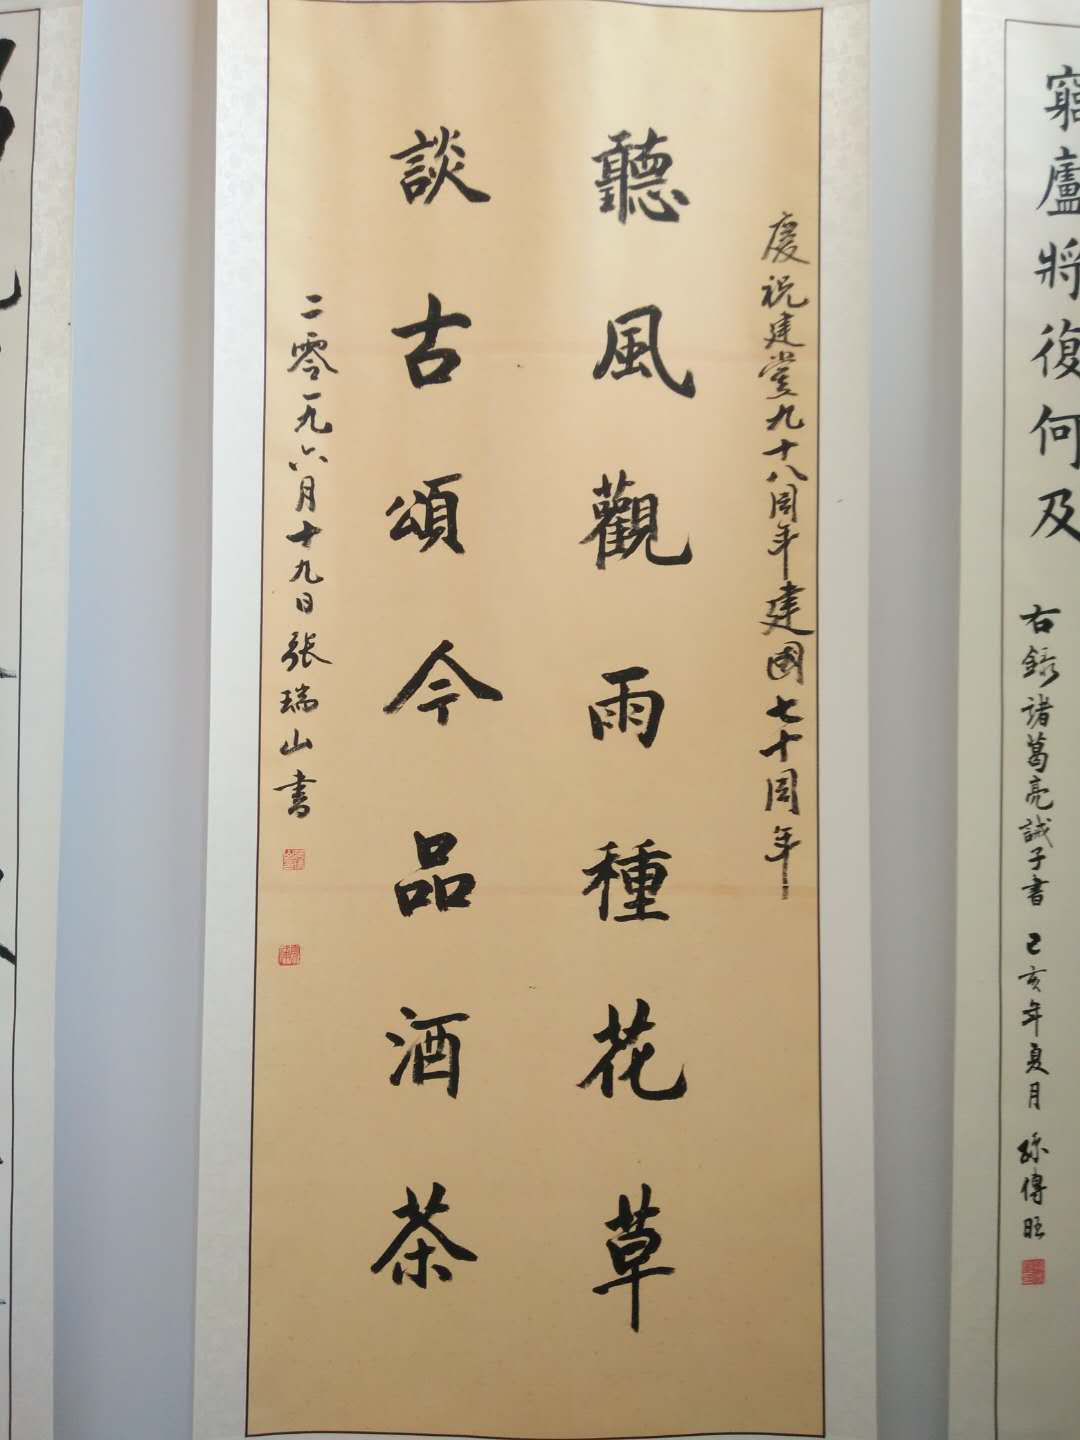 窮廬將復何及
右録諸葛亮誡子書 己亥年夏月 孫傳旺
慶祝建党九十八周年建國七十周年
聽風觀雨種花草
談古頌今品酒茶
二零一九六月十九日張瑞山書